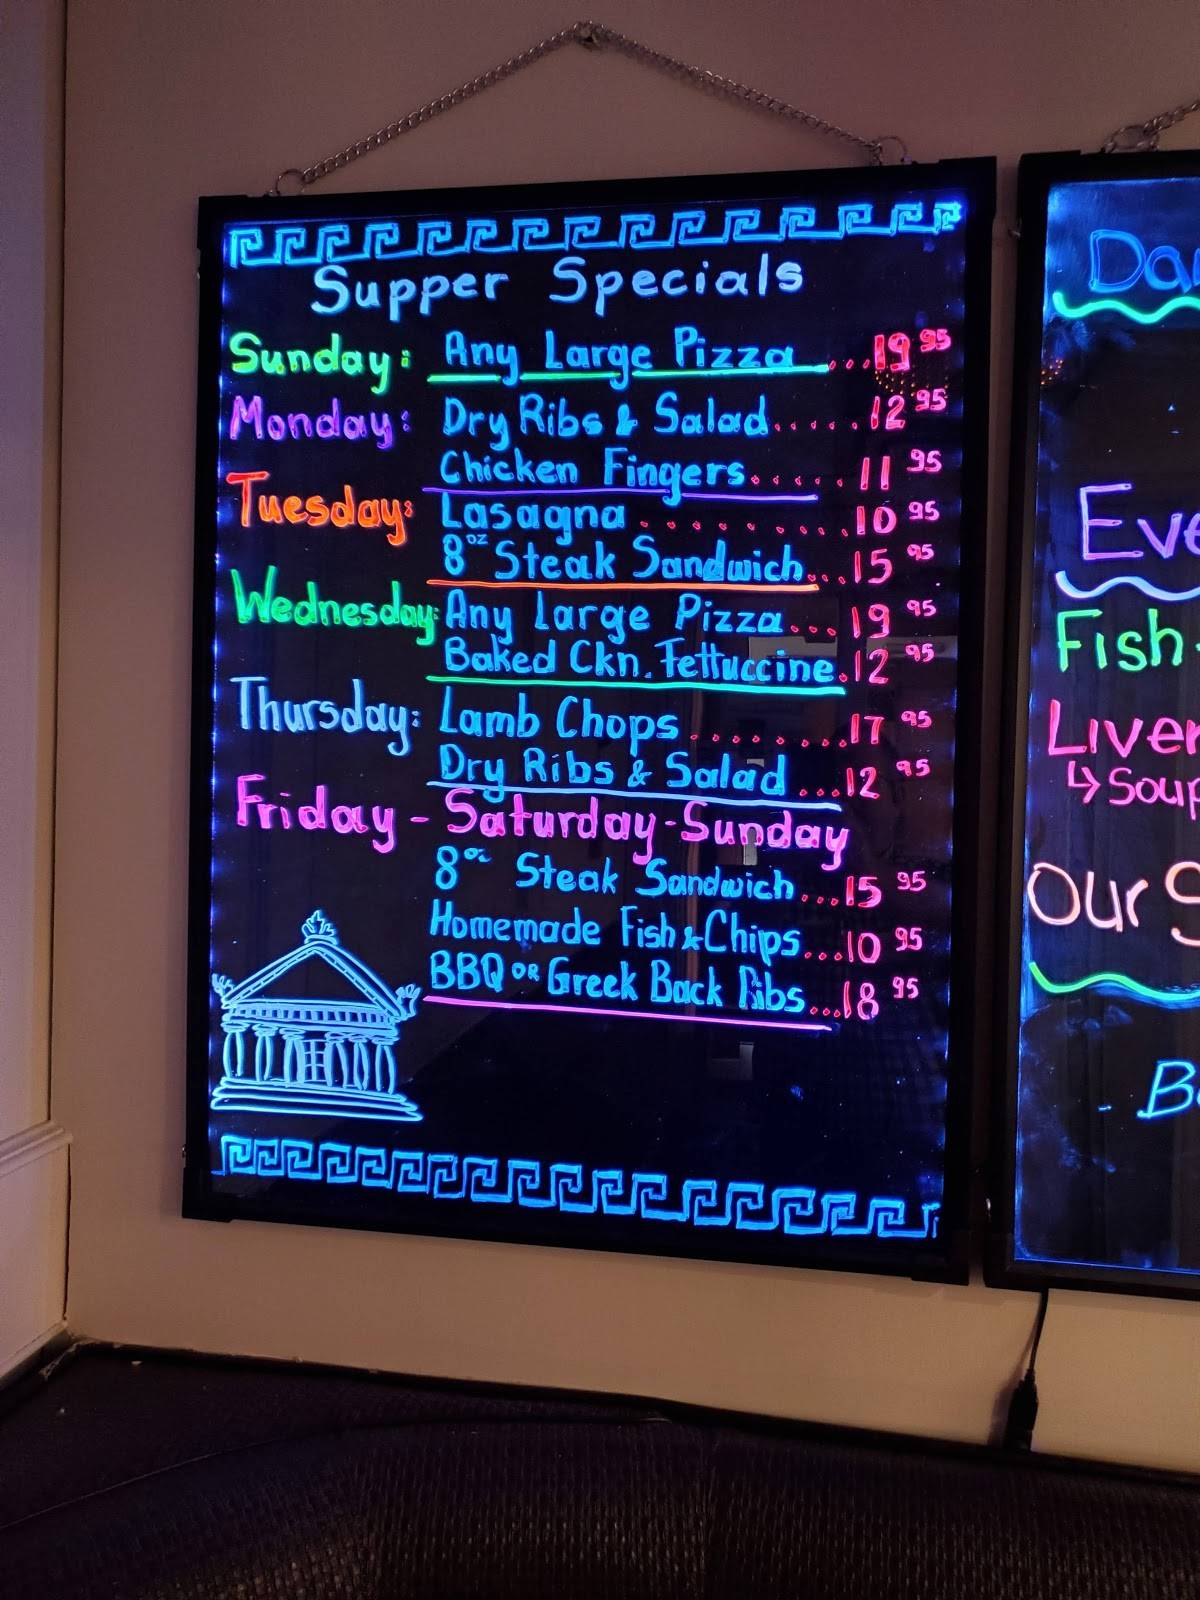 Supper Specials
Sunday: Any Large Pizza ...19 95
Monday: Dry Ribs & Salad.....12 95
Chicken Fingers.....11 95
Tuesday: Lasagna..........10 95
8oz Steak Sandwich...15 95
Wednesday: Any Large Pizza...19 95
Baked Ckn. Fettuccine.12 95
Thursday: Lamb Chops........17 95
Dry Ribs & Salad ...12 95
Friday - Saturday - Sunday
8oz Steak Sandwich...15 95
Homemade Fish & Chips...10 95
BBQ or Greek Back Ribs...18 95
Fish
Liver
↳ Soup
Our